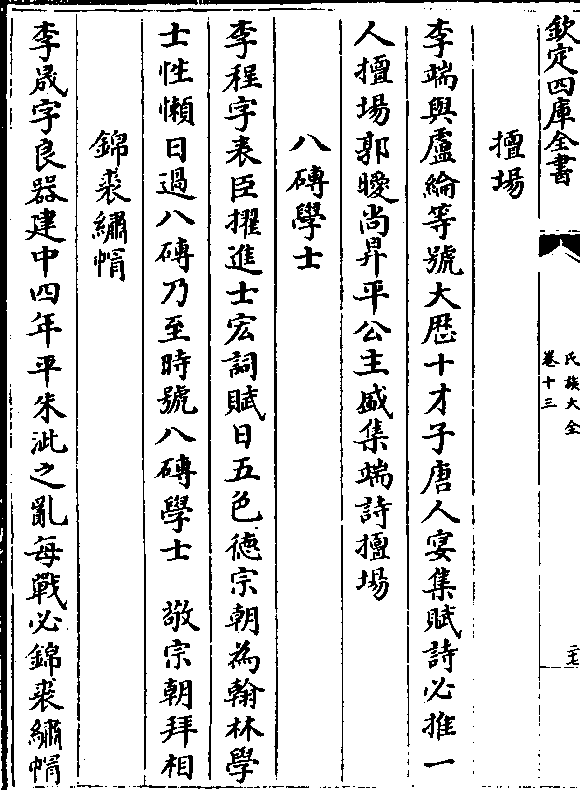 欽定四庫全書
氏族大全
卷十三
二七
擅場
李端與盧綸等號大厯十才子唐人宴集賦詩必推一
人擅場郭曖尚昇平公主盛集端詩擅場
八磚學士
李程字表臣擢進士宏詞賦日五色德宗朝為翰林學
士性懶日過八磚乃至時號八磚學士　敬宗朝拜相
錦裘繡帽
李晟字良器建中四年平朱泚之亂每戰必錦裘繡帽